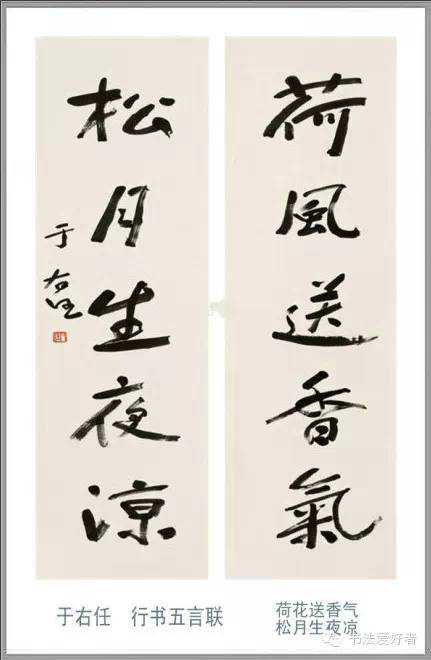 荷風送香氣
松月生夜涼
于右任
于右任 行书五言联
荷花送香气
松月生夜凉
书法爱好者